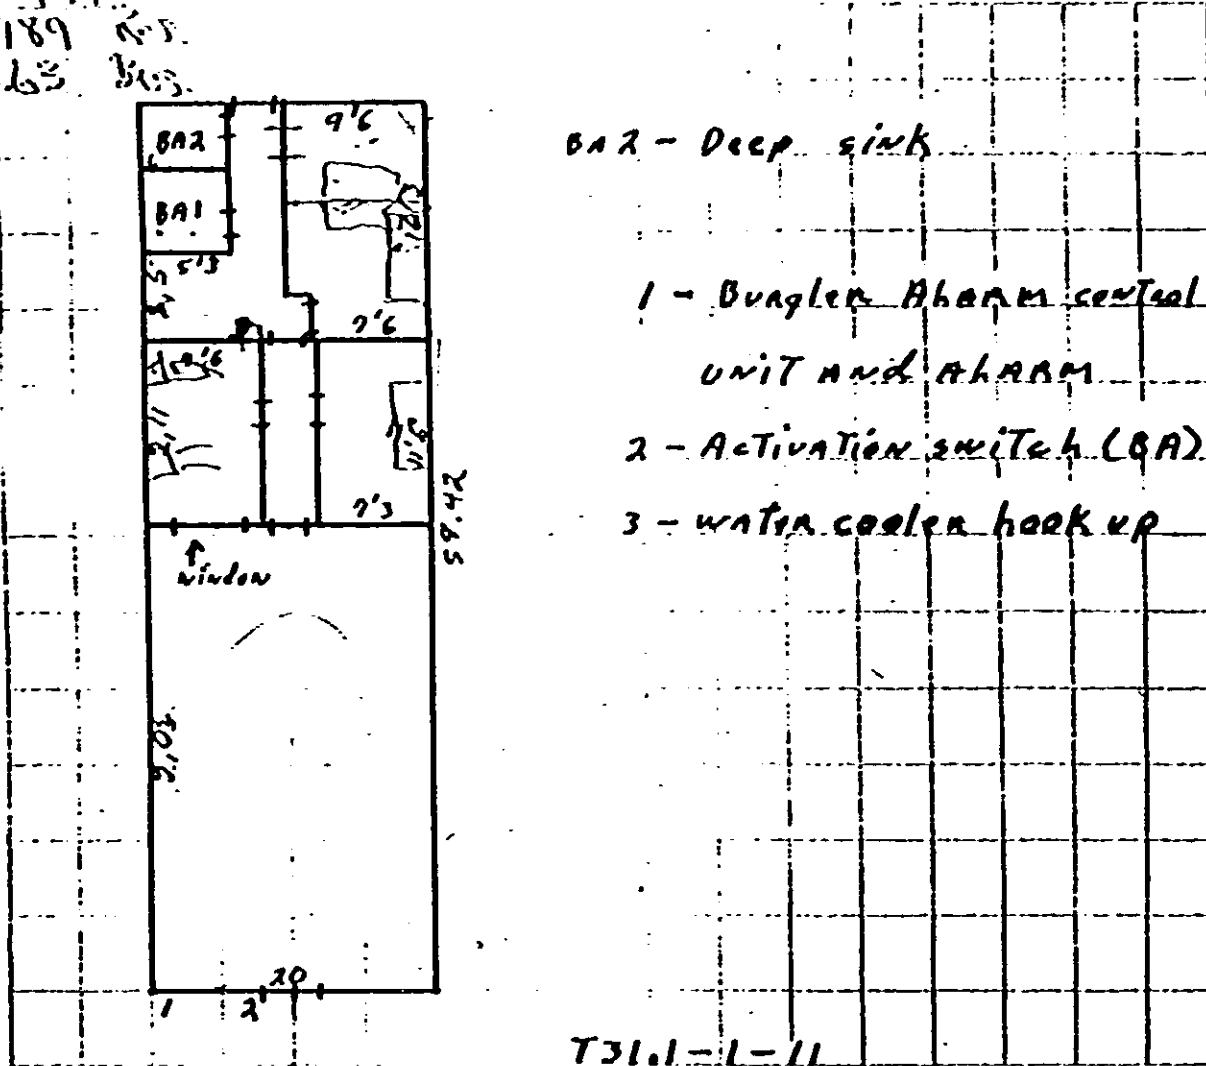 189
BA2
BA1
9'6
5'3
7'6
7'3
59.42
window
20
1
2
BA2 - Deep sink
1 - Burgler Alarm control
unit and Alarm
2 - Activation switch (BA)
3 - water cooler hook up
T31.1-1-11